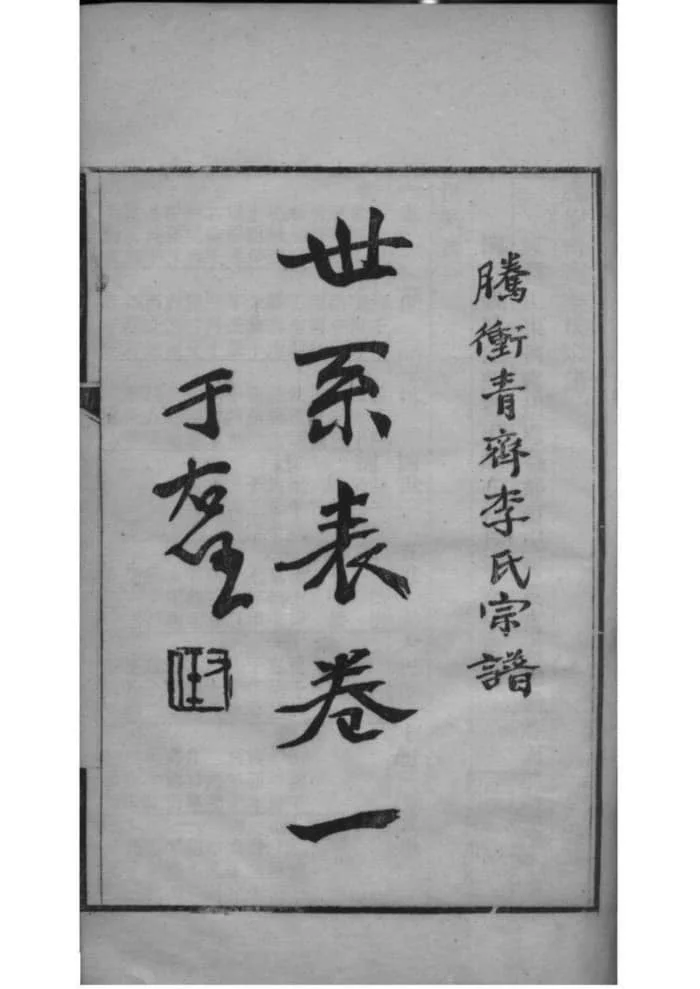 騰衝青齊李氏宗譜
世系表卷一
于右任
右任